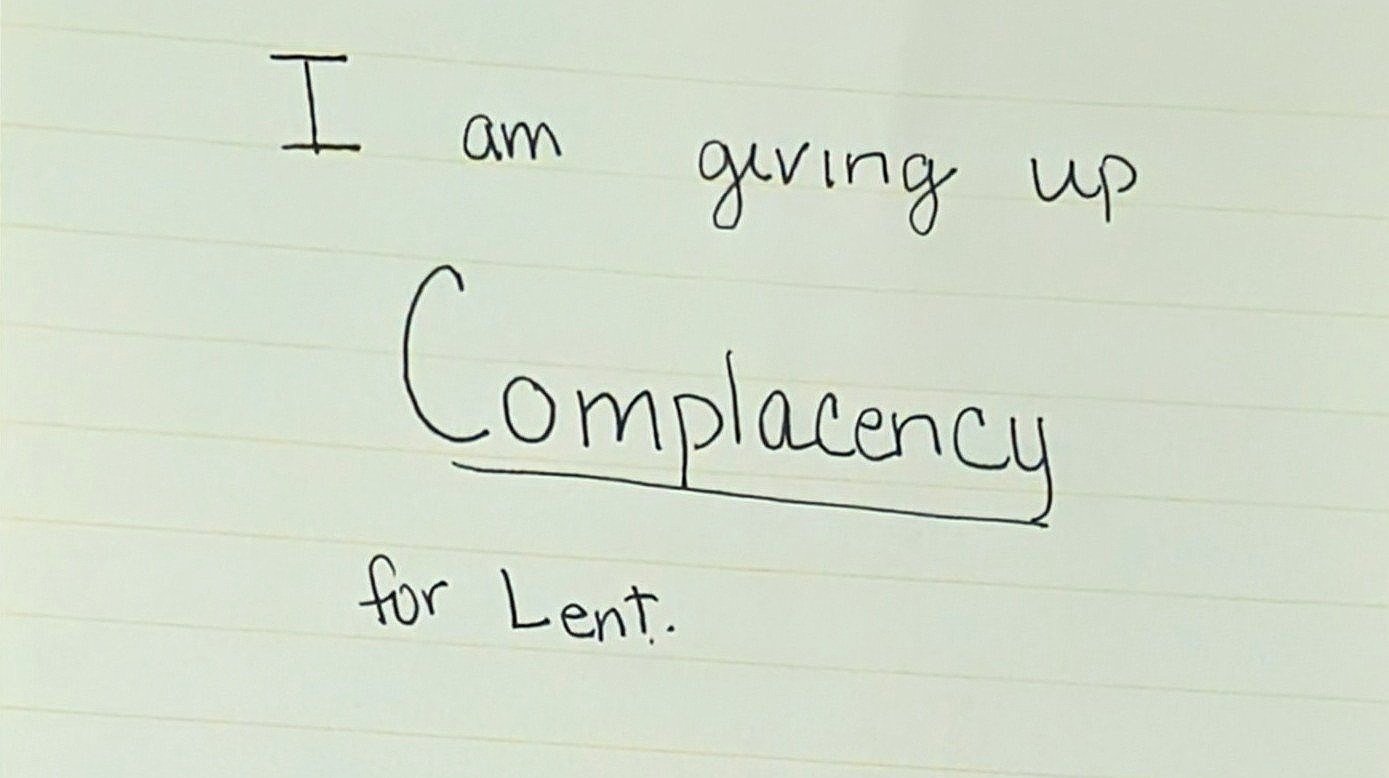 I am giving up
Complacency
for Lent.